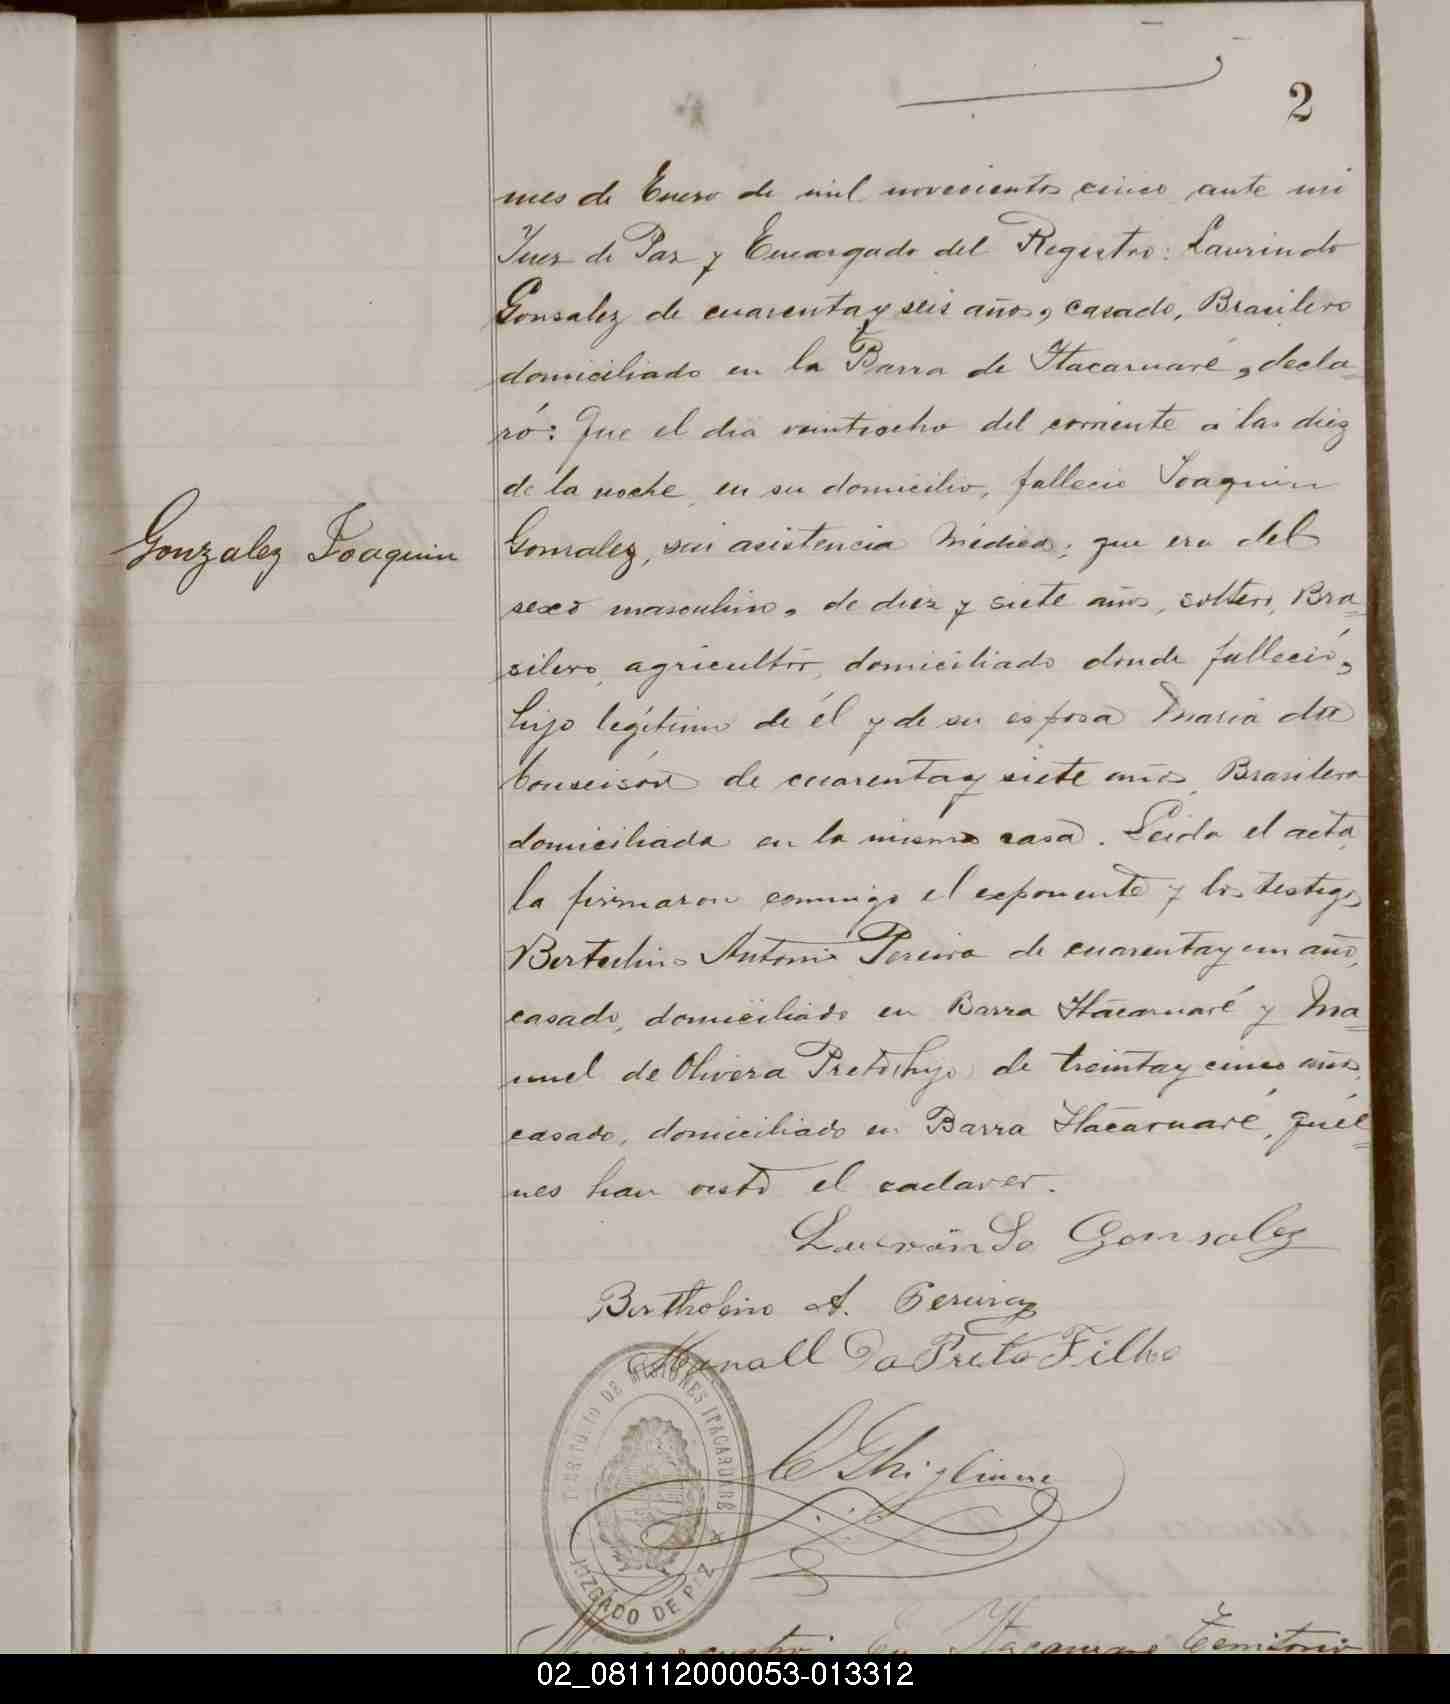 2
mes de Enero de mil novecientos cinco ante mi
Juez de Paz y Encargado del Registro: Laurindo
Gonsalez de cuarenta y seis años, casado, Brasilero
domiciliado en la Barra de Itacaruaré, decla-
ró: Que el dia veintiocho del corriente á las diez
de la noche, en su domicilio, fallecio Joaquin
Gonzalez Joaquin
Gonsalez, sin asistencia médica; que era del
sexo masculino, de diez y siete años, soltero, Bra-
silero, agricultor, domiciliado donde falleció,
hijo legítimo de él y de su esposa Maria da
Conseisón de cuarenta y siete años, Brasilera
domiciliada en la misma casa. Leida el acta,
la firmaron conmigo el exponente y los testigos
Bertulino Antonio Pereira de cuarenta y un año,
casado, domiciliado en Barra Itacaruaré y Ma-
nuel de Olivera Preto hijo de treinta y cinco años,
casado, domiciliado en Barra Itacaruaré, quié-
nes han visto el cadaver.
Laurindo Gonsalez
Bertholino A. Pereira
Manoell Do Preto Filho
C Ghiglione
TERRITORIO DE MISIONES ITACARUARÉ
JUZGADO DE PAZ
En Itacaruaré Territorio
02_081112000053-013312